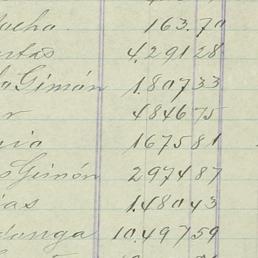 acha 163.70
ntas 4.291 28
Gimón 1.807 33
r 484 675
nia 1675 81
Gimón 2974 87
ias 1.480 43
donga 10.497 59